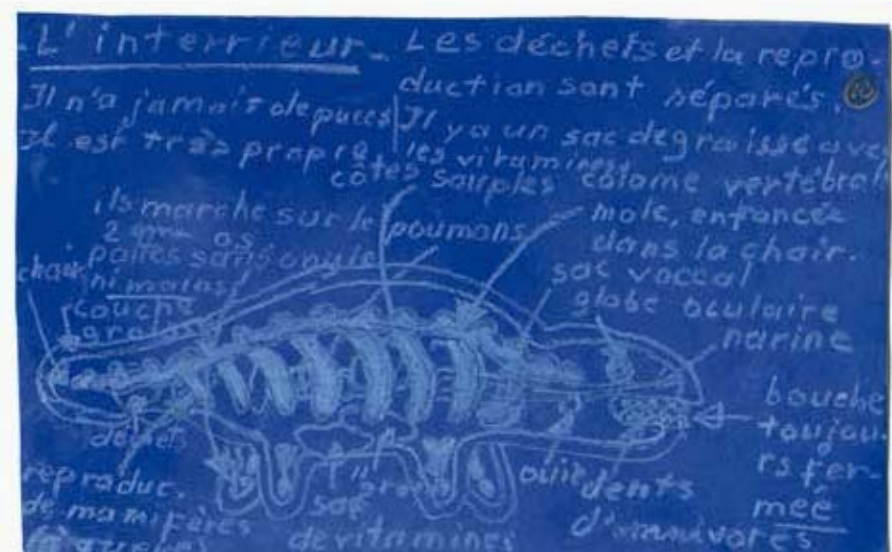 - L'interrieur - Les déchets et la repro-
duction sont séparés.
Il n'a jamais de puces
Il est très propre
Il y a un sac de graisse ave
les vitamines
côtes souples
colome vertébral
mole, enfoncée
dans la chair.
ils marche sur le
2
pattes sans ongle
ni
poumons
sac voccal
globe oculaire
narine
chair
couche
déchets
bouche
toujou-
rs fer-
mée
reproduc.
de mamifères
sac
de vitamines
ouïe
dents
d'omnivores